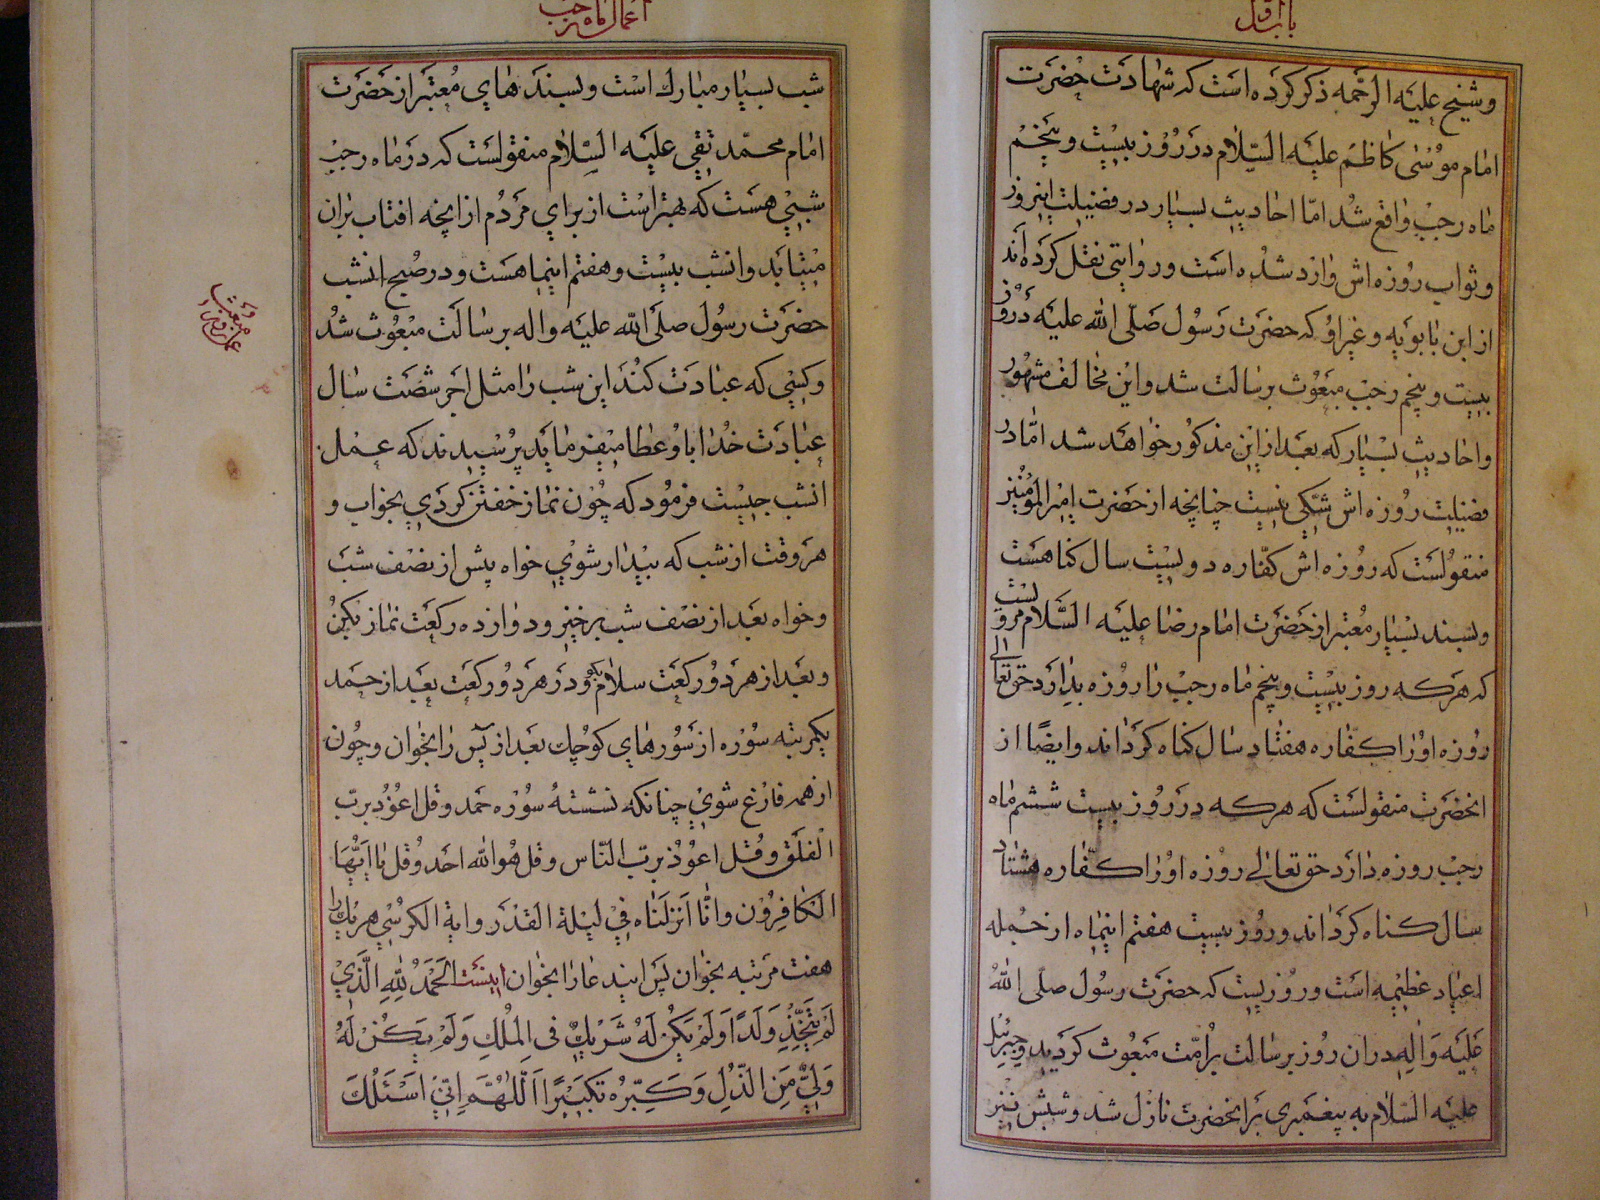 باب اول
و شیخ علیه الرحمه ذکر کرده است که شهادت حضرت
امام موسی کاظم علیه السلام در روز بیست و پنجم
ماه رجب واقع شد اما احادیث بسیار در فضیلت اینروز
و ثواب روزه اش وارد شده است و روایتی نقل کرده اند
از ابن بابویه و غیر او که حضرت رسول صلی الله علیه در روز
بیست و پنجم رجب مبعوث برسالت شد و این مخالف مشهور
و احادیث بسیار که بعد از این مذکور خواهد شد اما در
فضیلت روزه اش شکی نیست چنانچه از حضرت امیرالمؤمنین
منقولست که روزه اش کفاره دویست سال کناهست
و بسند بسیار معتبر از حضرت امام رضا علیه السلام مرویست
که هر که روز بیست و پنجم ماه رجب را روزه بدارد حق تعالی
روزه او را کفاره هفتاد سال کناه کرداند و ایضًا از
انحضرت منقولست که هر که در روز بیست ششم ماه
رجب روزه دارد حق تعالی روزه او را کفاره هشتاد
سال کناه کرداند و روز بیست هفتم اینماه از جمله
اعیاد عظیمه است و روزیست که حضرت رسول صلی الله
علیه و اله در ان روز برسالت بر امت مبعوث کردید و جبرئیل
علیه السلام به پیغمبری بر انحضرت نازل شد و شبش نیز
اعمال ماه رجب
شب بسیار مبارك است و بسندهای معتبر از حضرت
امام محمد تقی علیه السلام منقولست که در ماه رجب
شبی هست که بهتر است از برای مردم از انچه افتاب بران
میتابد و انشب بیست و هفتم اینماهست و در صبح انشب
حضرت رسول صلی الله علیه واله برسالت مبعوث شد
و کسی که عبادت کند این شب را مثل اجر شصت سال
عبادت خدا باو عطا میفرماید پرسیدند که عمل
انشب چیست فرمود که چون نماز خفتن کردی بخواب و
هر وقت از شب که بیدار شوی خواه پیش از نصف شب
و خواه بعد از نصف شب برخیز و دوازده رکعت نماز بکن
و بعد از هر دو رکعت سلام بکو و در هر دو رکعت بعد از حمد
یکمرتبه سوره از سورهای کوچك بعد از یس را بخوان و چون
از همه فارغ شوی چنانکه نشستهٔ سوره حمد و قل اعوذ برب
الفلق و قل اعوذ برب الناس و قل هو الله احد و قل یا ایها
الکافرون و انا انزلناه فی لیلة القدر و ایة الکرسی هریك را
هفت مرتبه بخوان پس ایندعا را بخوان اینست الحمد لله الذی
لم یتخذ ولدا و لم یکن له شریك فی الملك و لم یکن له
ولی من الذل و کبره تکبیرا اللهم انی اسئلك